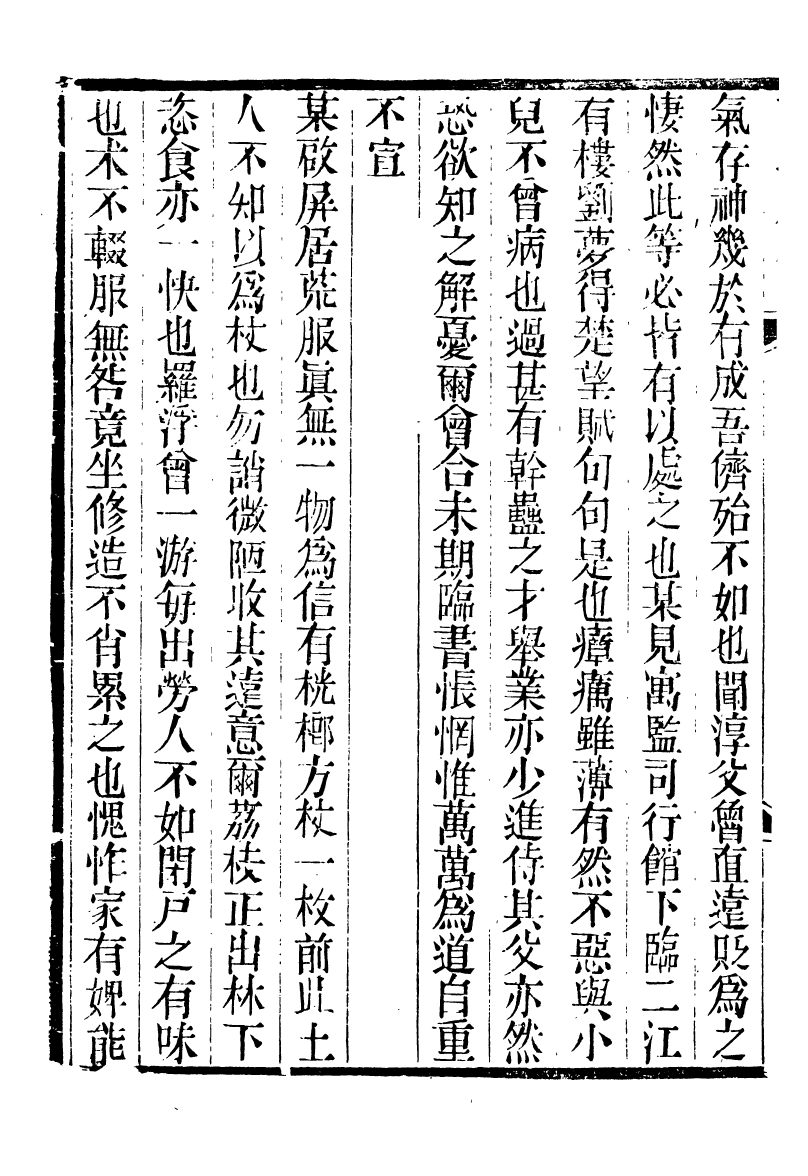 氣存神幾於有成吾儕殆不如也聞淳父曾直遠貶爲之
悽然此等必皆有以處之也某見寓監司行館下臨二江
有樓劉夢得楚望賦句句是也瘴癘雖薄有然不惡與小
兒不曾病也過甚有幹蠱之才舉業亦少進侍其父亦然
恐欲知之解憂爾會合未期臨書悵惘惟萬萬爲道自重
不宣
某啟屏居荒服眞無一物爲信有桄榔方杖一枚前此土
人不知以爲杖也勿誚微陋收其遠意爾荔枝正出林下
恣食亦一快也羅浮曾一游每出勞人不如閉戸之有味
也术不輟服無咎竟坐修造不肖累之也愧怍家有婢能